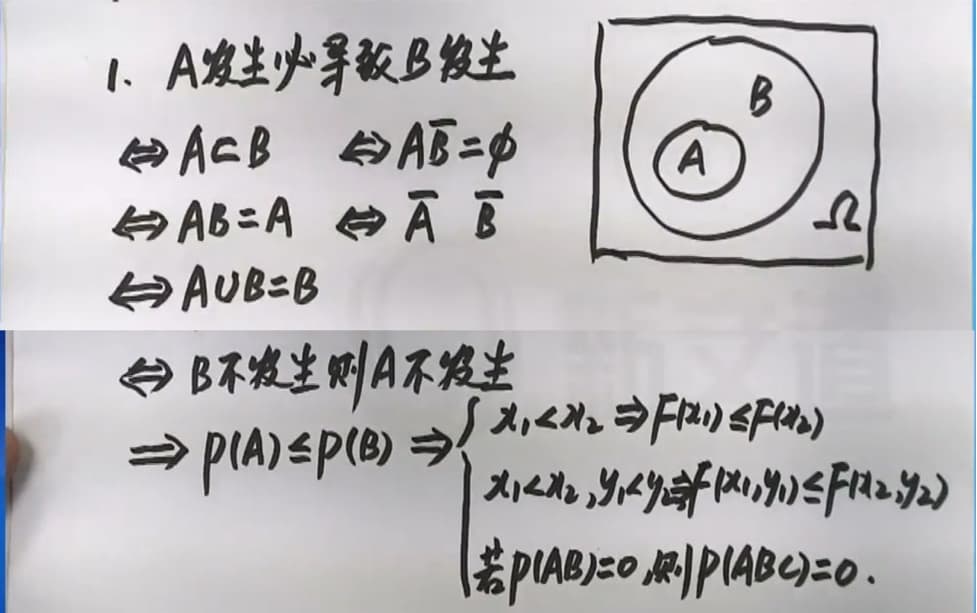 1. A发生必导致B发生
⇔ A⊂B ⇔ AB̅=φ
⇔ AB=A ⇔ A̅ B̅
⇔ A∪B=B
B
A
Ω
⇔ B不发生则A不发生
⇒ P(A)≤P(B) ⇒ { x₁<x₂ ⇒ F(x₁)≤F(x₂)
x₁<x₂,y₁<y₂⇒F(x₁,y₁)≤F(x₂,y₂)
若P(AB)=0,则P(ABC)=0.